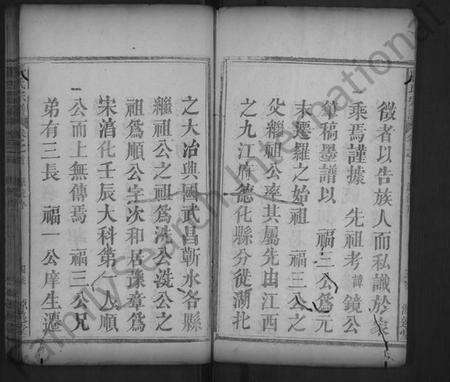 徵者以告族人而私識於家
乘焉謹據 先祖考諱鏡公
紅稿墨譜以 福三公爲元
末豫羅之始祖 福三公之
父繼祖公率其屬先由江西
之九江府德化縣分徙湖北
之大冶興國武昌蘄水各縣
繼祖公之祖爲洪公洪公之
祖爲順公字次和居豫章爲
宋淳化壬辰大科第一人順
公而上無傳焉 福三公兄
弟有三長 福一公庠生遷
FamilySearch International